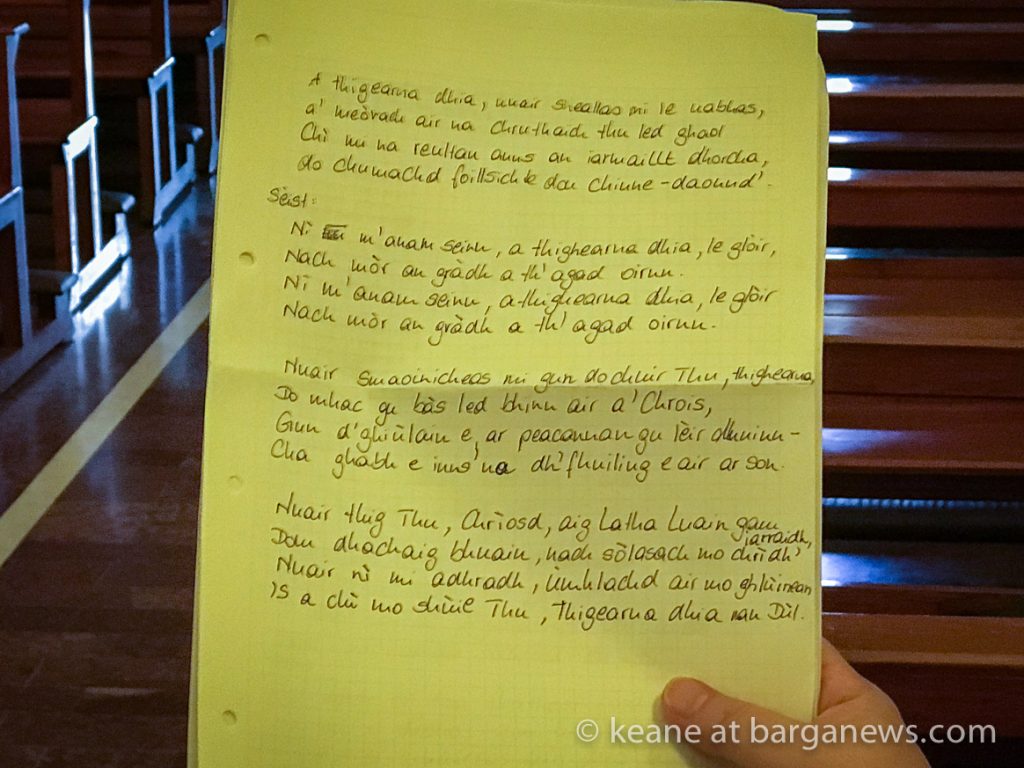 A thigearna dhia, nuair sheallas mi le uabhas,
a' meòrach air na chruthaich thu led ghaol
Chì mi na reultan anns an iarmailt dhorcha,
do chumachd foillsichte don chinne-daonnd'.
Sèist:
Nì m'anam seinn, a thighearna dhia, le glòir,
Nach mòr an gràdh a th'agad oirnn.
Nì m'anam seinn, a thighearna dhia, le glòir
Nach mòr an gràdh a th'agad oirnn.
Nuair smaoinicheas mi gun do chuir Thu, thighearna,
Do mhac gu bàs led bhinn air a'Chrois,
Gun d'ghiùlain e, ar peacannan gu lèir dhuinn-
Cha ghabh e inns'na dh'fhuiling e air ar son.
Nuair thig Thu, Chrìosd, aig Latha Luain gam
iarraidh,
Dom dhachaig bhuain, nach sòlasach mo chrìdh'
Nuair nì mi adhradh, ùmhlachd air mo ghlùinean
's a chì mo shùil Thu, Thigearna dhia nan Dùl.
© keane at barganews.com